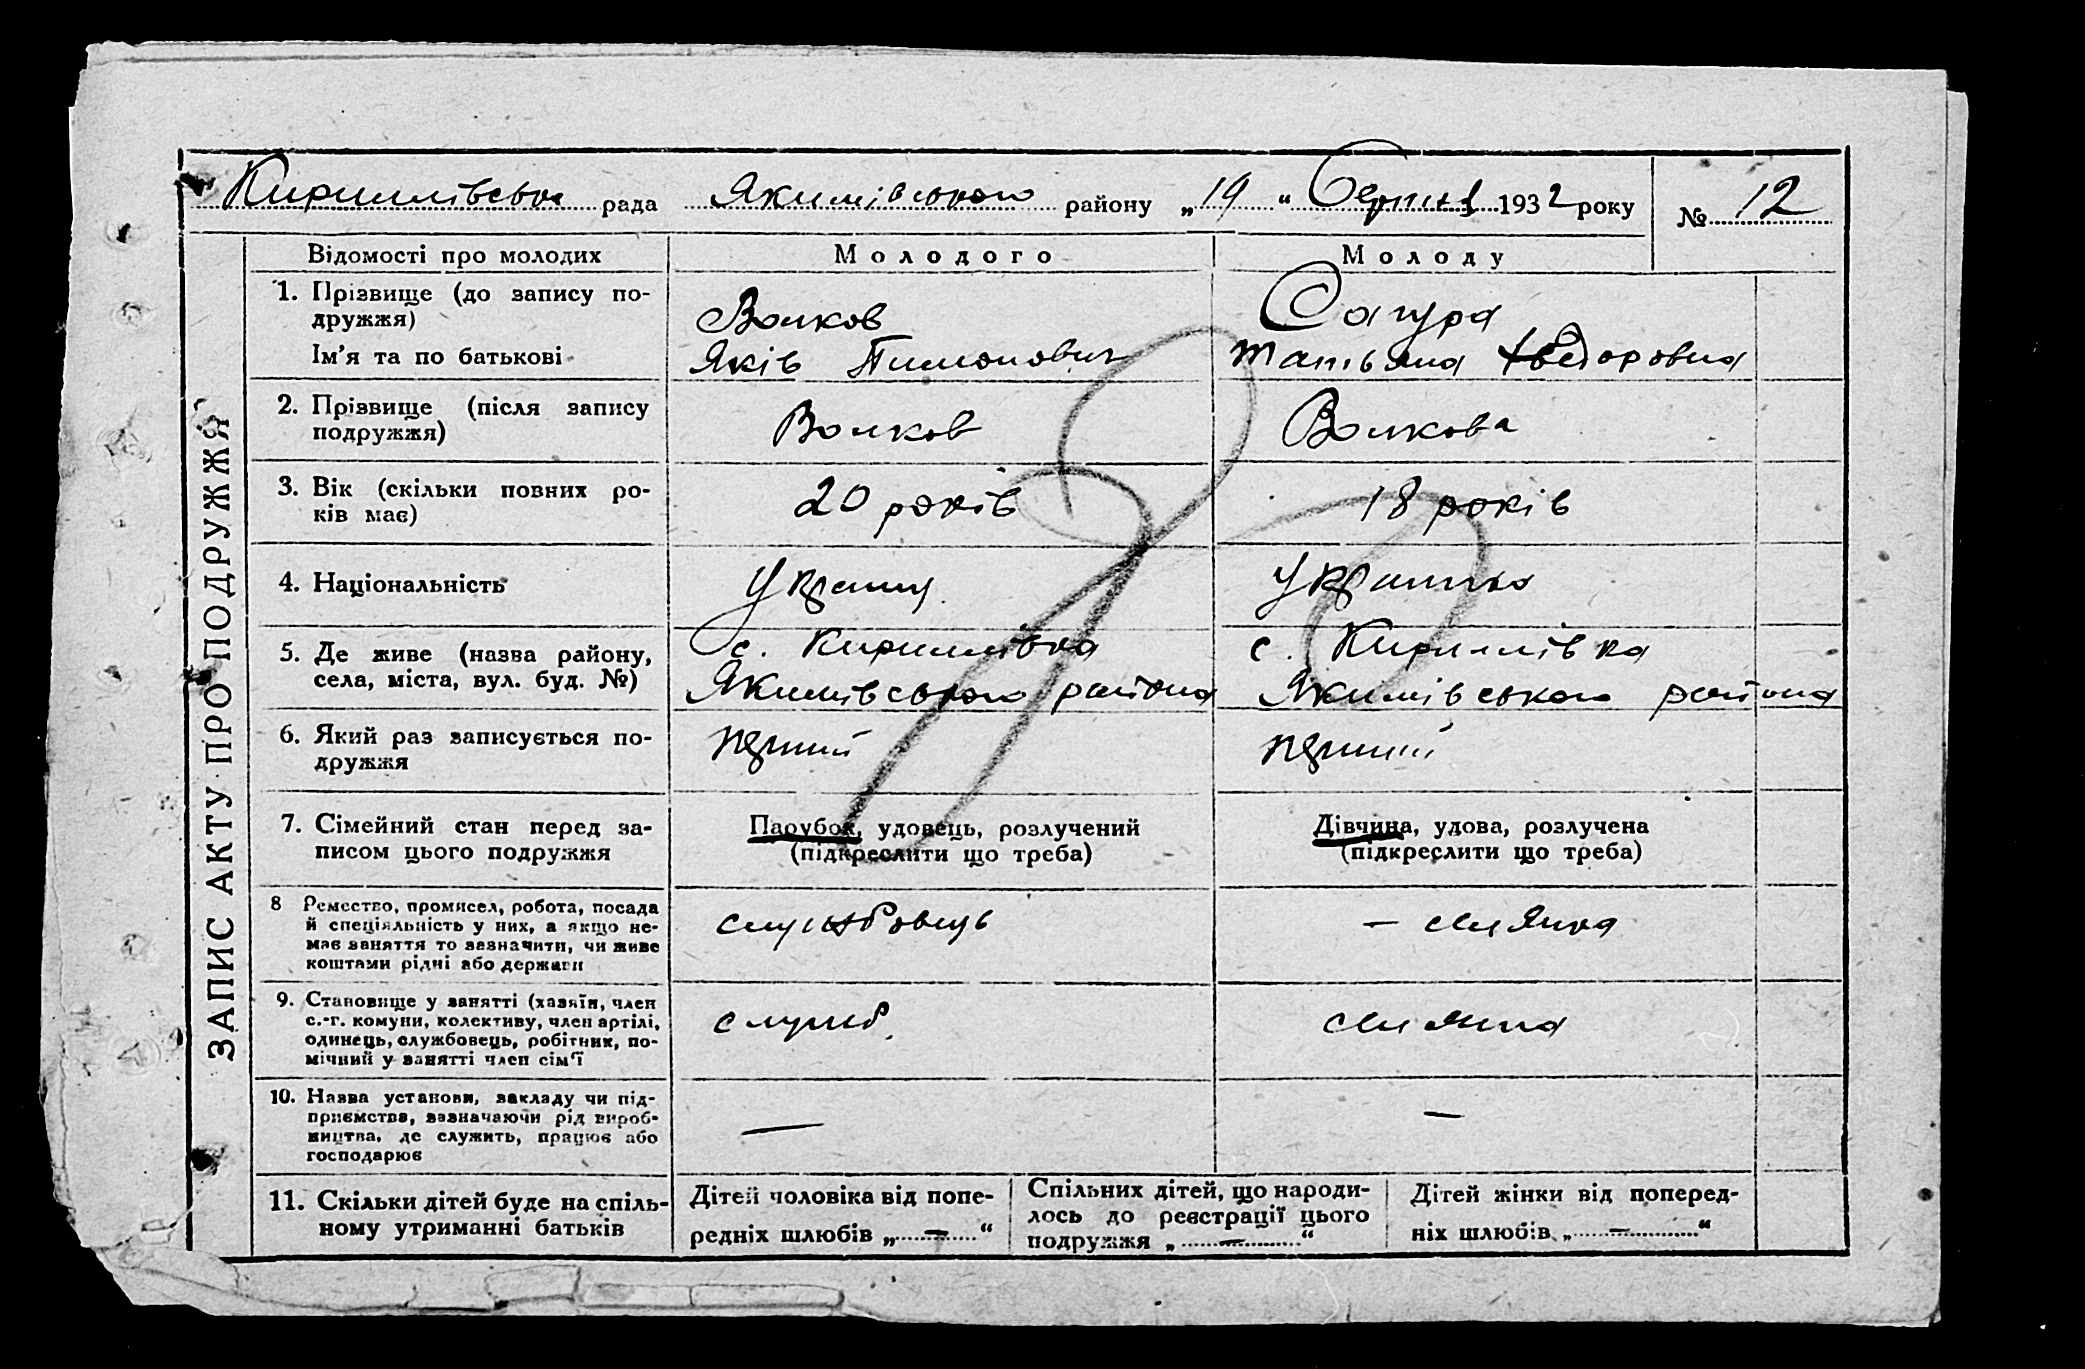 Кириллівська рада Якимівського району „19 “ Серпня 1932 року № 12
ЗАПИС АКТУ ПРО ПОДРУЖЖЯ
Відомості про молодих
Молодого
Молоду
1. Прізвище (до запису по-
дружжя)
Ім’я та по батькові
Волков
Яків Тимонович
Сагура
Татьяна Хведоровна
2. Прізвище (після запису
подружжя)
Волков
Волкова
3. Вік (скільки повних ро-
ків має)
20 років
18 років
4. Національність
Українц
Українка
5. Де живе (назва району,
села, міста, вул. буд. №)
с. Кириллівка
Якимівського района
с. Кириллівка
Якимівського района
6. Який раз записується по-
дружжя
перший
перший
7. Сімейний стан перед за-
писом цього подружжя
Парубок, удовець, розлучений
(підкреслити що треба)
Дівчина, удова, розлучена
(підкреслити що треба)
8 Ремество, промисел, робота, посада
й спеціяльність у них, а якщо не-
має заняття то зазначити, чи живе
коштами рідні або держави
службовець
— селянка
9. Становище у занятті (хазяїн, член
с.-г. комуни, колективу, член артілі,
одинець, службовець, робітник, по-
мічний у занятті член сім’ї
служб.
селянка
10. Назва установи, закладу чи під-
приємства, зазначаючи рід вироб-
ництва, де служить, працює або
господарює
—
—
11. Скільки дітей буде на спіль-
ному утриманні батьків
Дітей чоловіка від попе-
редніх шлюбів „ — “
Спільних дітей, що народи-
лось до реєстрації цього
подружжя „ — “
Дітей жінки від поперед-
ніх шлюбів „ — “